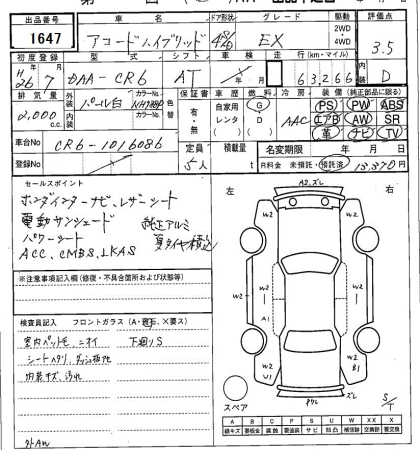 出品番号 車名 ドア形状 グレード 駆動 評価点
1647 アコードハイブリッド 4D EX 2WD・4WD 3.5
初度登録 型式 シフト 車検 走行(km・マイル) 内装
H26 7 DAA-CR6 AT 63266 D
排気量 外装色 カラーNo. 色替 保証書 車歴 燃料 冷房 装備(純正部品に限る)
2,000 cc パール白 NH788P 有・無 自家用 レンタ G D AAC PS PW ABS
エアB AW SR
革 ナビ TV
車台No CR6-1016086 定員 積載量 名変期限 年 月 日
登録No 5人 t R料金 未預託・預託済 13,370円
セールスポイント
ホンダインターナビ、レザーシート
電動サンシェード 純正アルミ
パワーシート 夏タイヤ積込
ACC、CMBS、LKAS
※注意事項記入欄(修復・不具合箇所および状態等)
検査員記入 フロントガラス(A・飛石、X要ス)
室内ペット毛、ニオイ 下廻りS
シートヘタリ、
内装キズ、汚れ
外AW
左 右
A2、ズレ
W2 W2
W2 W2
W2 A1 W2
W2 U1 W2 B1
ズレ
スペア
A B C P S U W X XX
線キズ 要板金 腐蝕 要塗装 サビ 凹凸 補修跡 交換跡 要交換